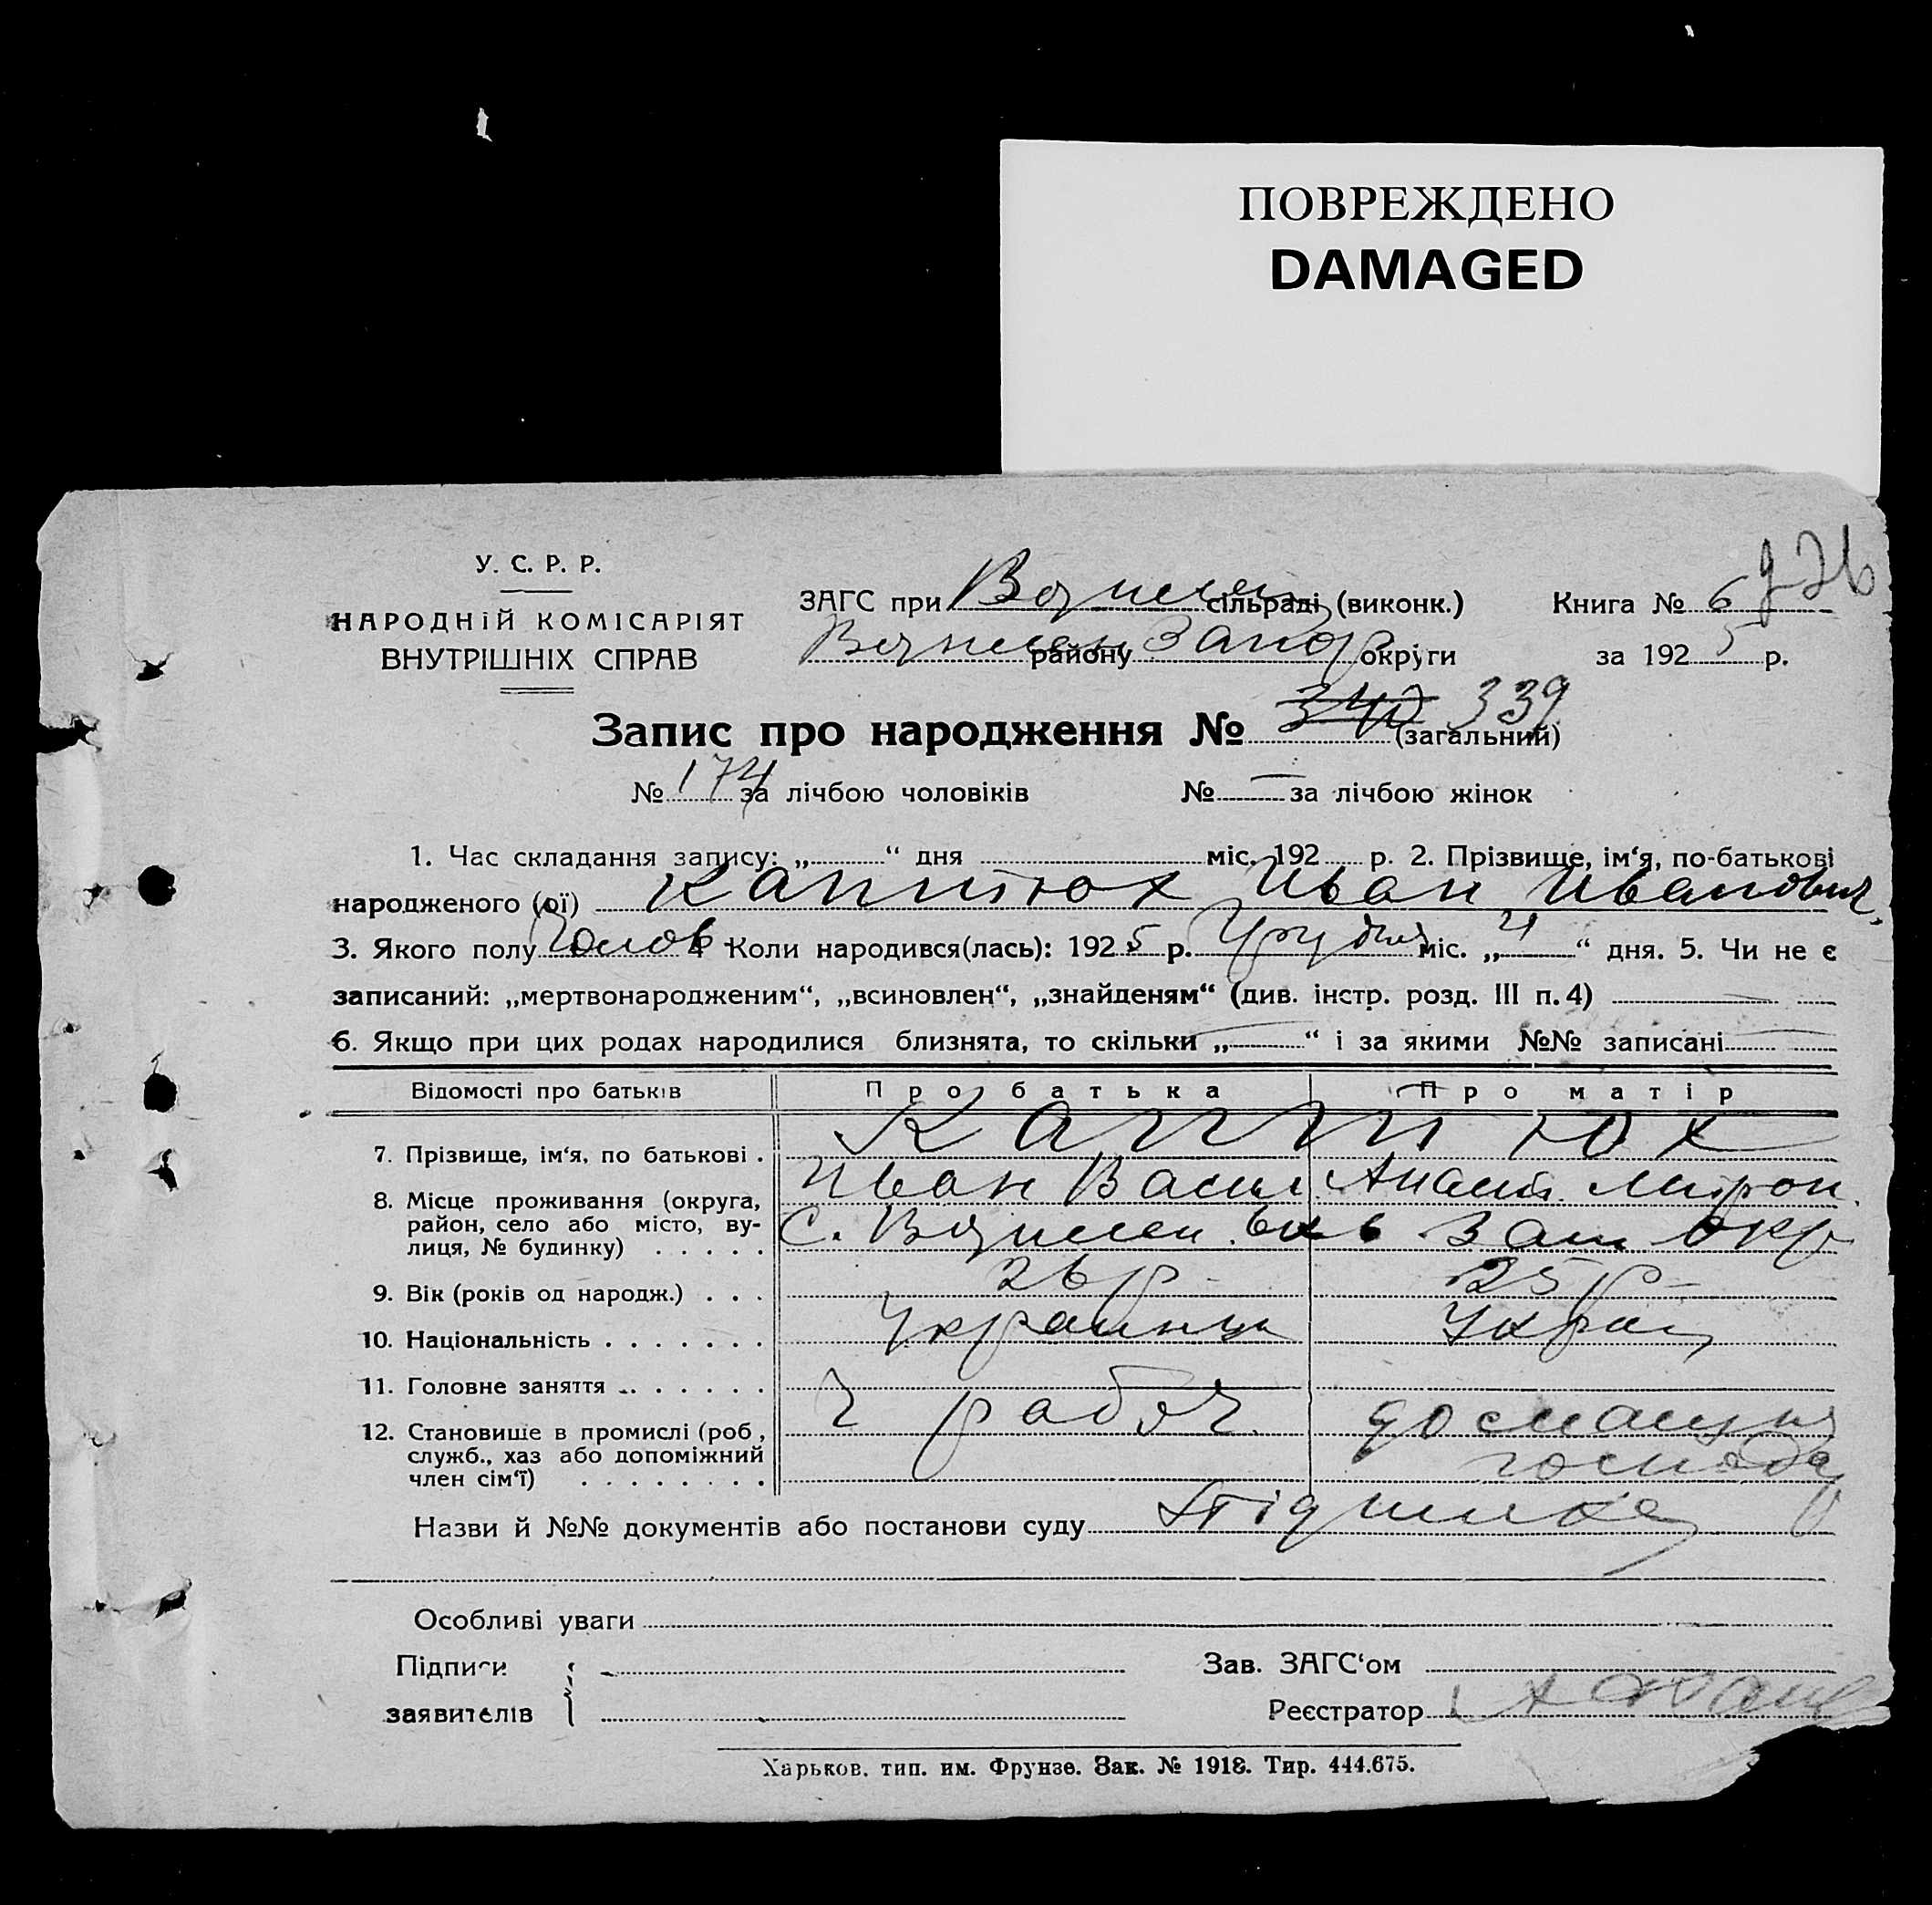 ПОВРЕЖДЕНО
DAMAGED
У. С. Р. Р.
НАРОДНІЙ КОМІСАРІЯТ
ВНУТРІШНІХ СПРАВ
ЗАГС при сільраді (виконк.)
району Запор округи
Книга № 6
за 1925 р.
Запис про народження № 340 339 (загальний)
№ 174 за лічбою чоловіків № — за лічбою жінок
1. Час складання запису: „ “ дня міс. 192 р. 2. Прізвище, ім‘я, по-батькові
народженого (ої) Каптюх Иван Иванович
3. Якого полу Чолов 4 Коли народився(лась): 1925 р. Грудня міс. „4“ дня. 5. Чи не є
записаний: „мертвонародженим“, „всиновлен“, „знайденям“ (див. інстр. розд. III п. 4)
6. Якщо при цих родах народилися близнята, то скільки „—“ і за якими №№ записані
Відомості про батьків Про батька Про матір
7. Прізвище, ім‘я, по батькові . Каптюх
Иван Васил Анаст. Мирон.
8. Місце проживання (округа,
район, село або місто, ву-
лиця, № будинку) . . . . . С. Зап окр
9. Вік (років од народж.) . . . 26 р. 25 р.
10. Національність . . . . . . . Украинци Украц
11. Головне заняття . . . . . . .
12. Становище в промислі (роб.,
служб., хаз або допоміжний
член сім‘ї) . . . . . . . . Ч рабоч. домашня
господа
Назви й №№ документів або постанови суду
Особливі уваги
Підписи
заявителів
Зав. ЗАГС‘ом
Реєстратор
Харьков, тип. им. Фрунзе. Зак. № 1918. Тир. 444.675.